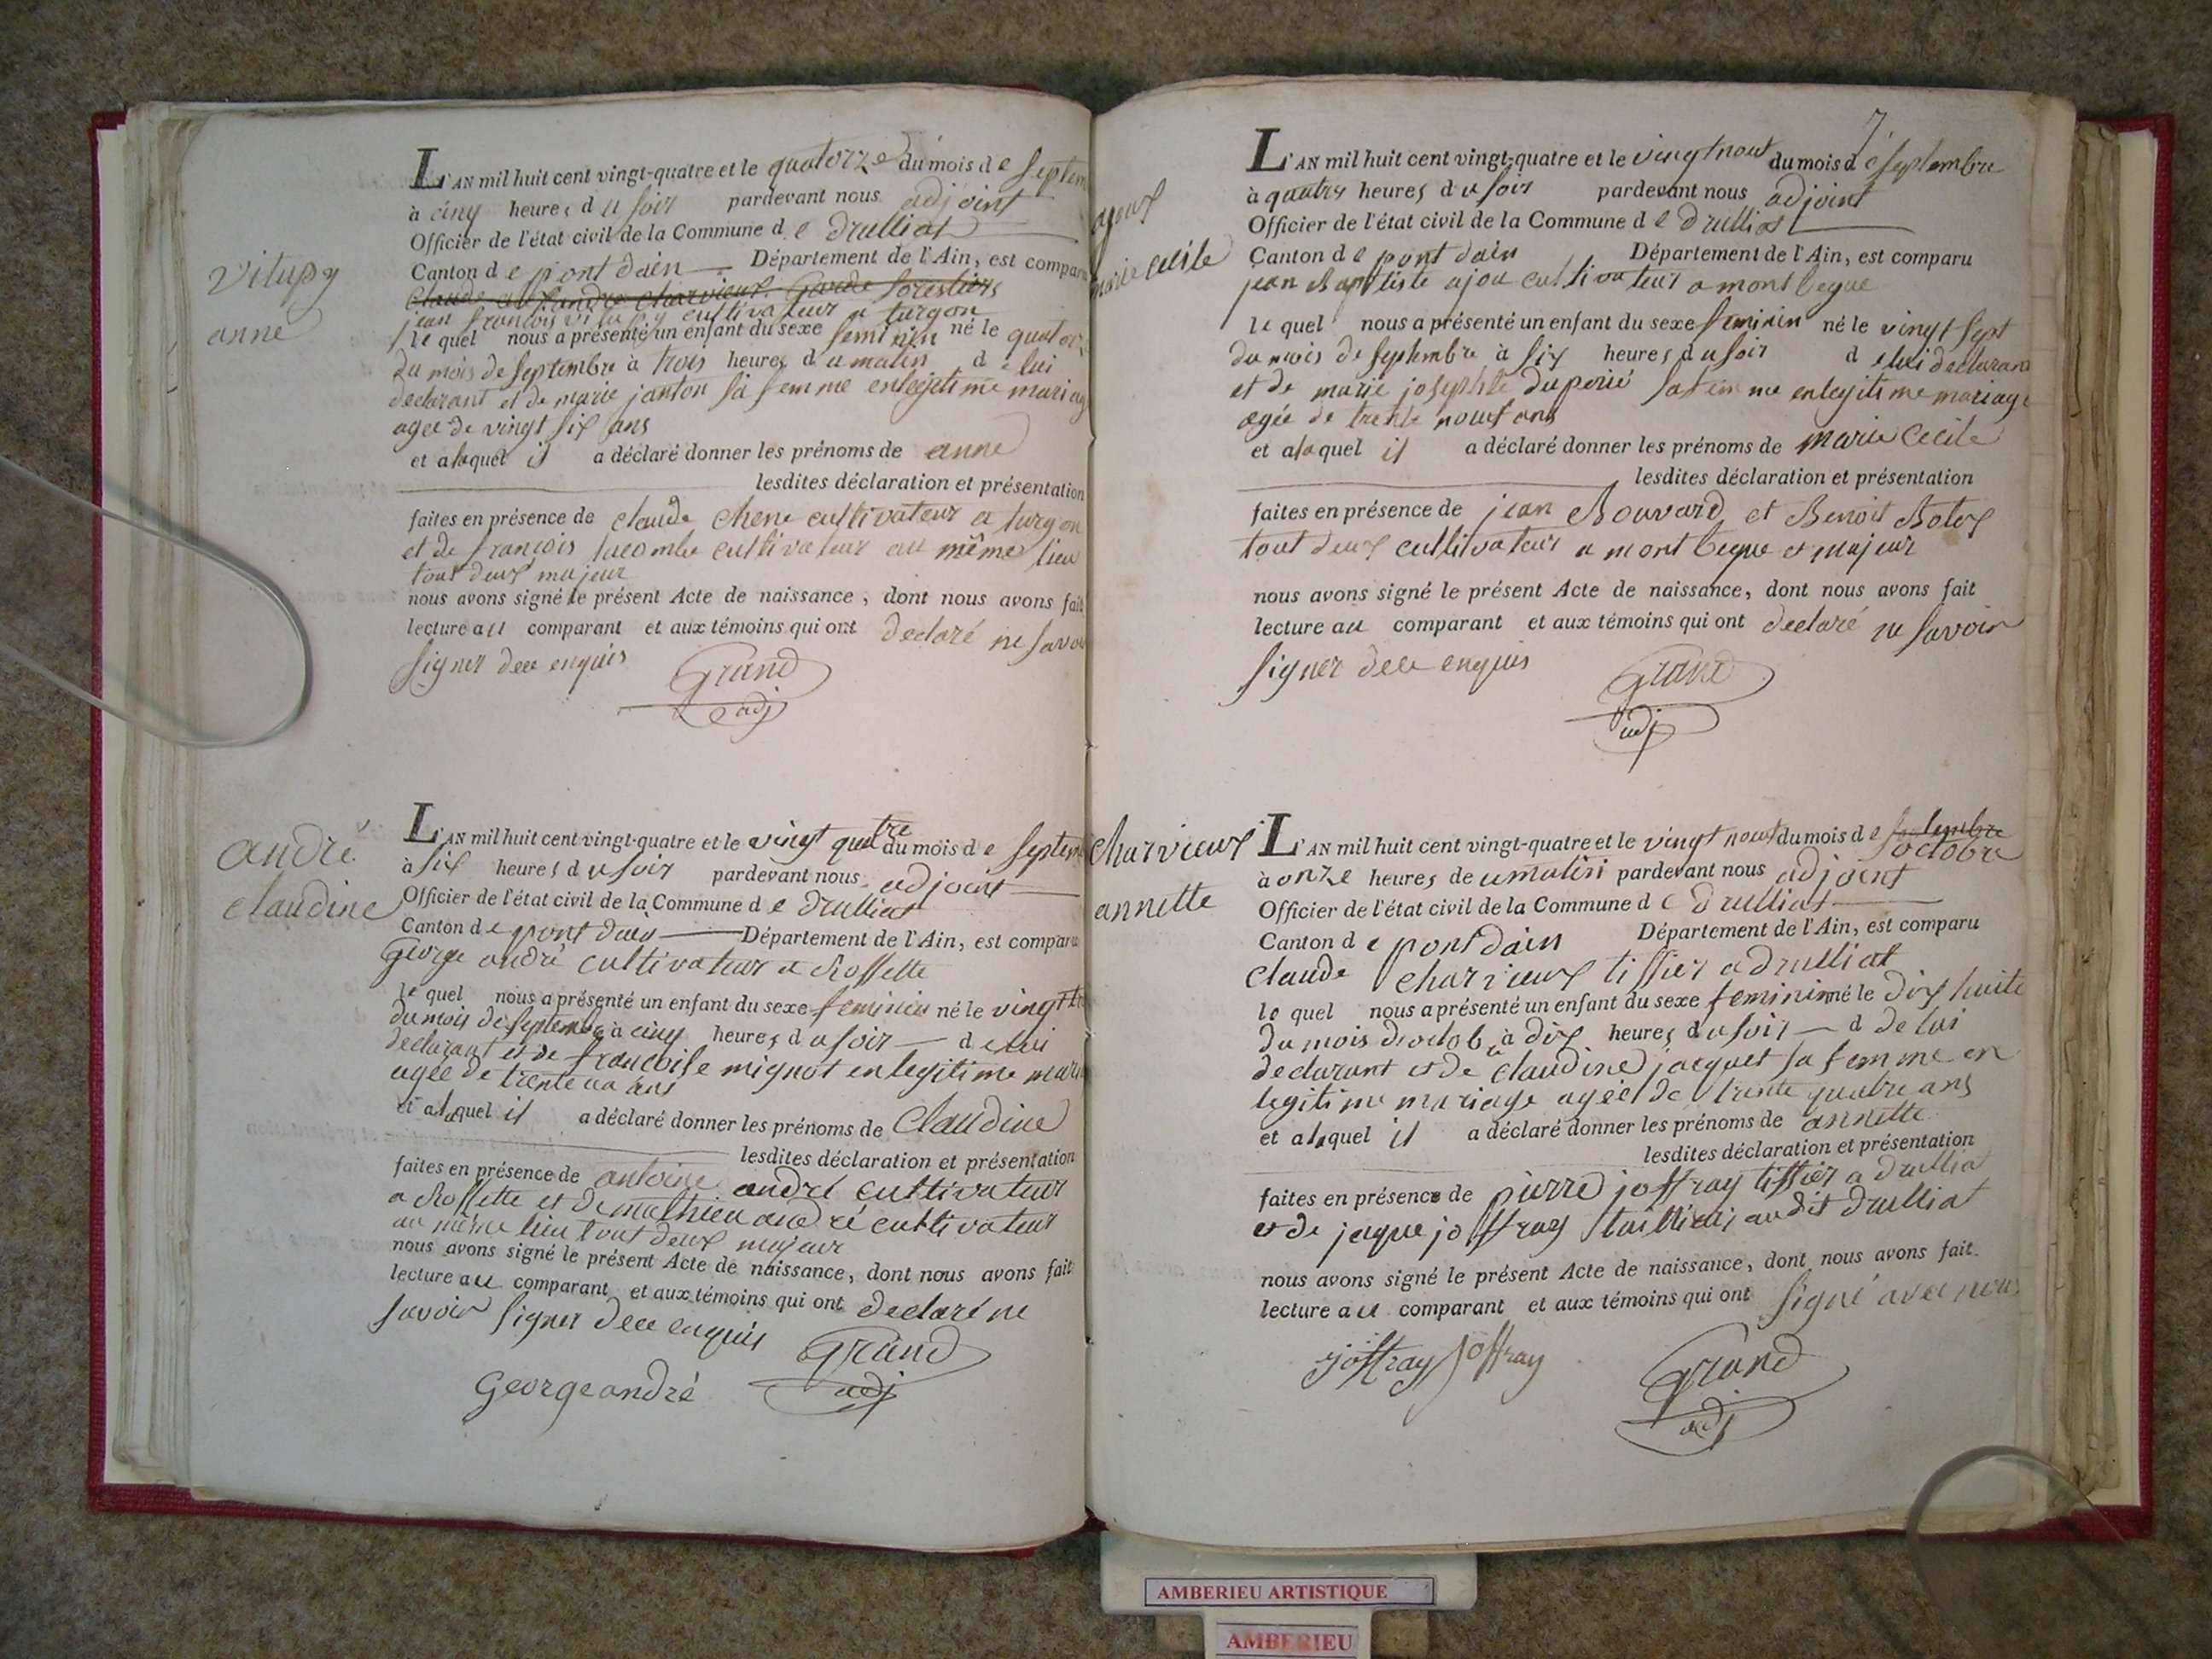 vitupy
anne
L'AN mil huit cent vingt-quatre et le quatorze du mois de septem
à cinq heures du soir pardevant nous adjoint
Officier de l'état civil de la Commune de Drulliat
Canton de pont dain Département de l'Ain, est comparu
Claude charvieux Garde forestiers
jean françois vitupy cultivateur a turgon
le quel nous a présenté un enfant du sexe feminin né le quator
du mois de septembre à trois heures du matin de lui
declarant et de marie janton sa femme enlegitime mariag
agee de vingt six ans
et alaquel il a déclaré donner les prénoms de anne
lesdites déclaration et présentation
faites en présence de claude chene cultivateur a turgon
et de françois lacombe cultivateur au même lieu
tout deux majeur
nous avons signé le présent Acte de naissance, dont nous avons fait
lecture au comparant et aux témoins qui ont declaré ne savoi
signer dece enquis
Grand
adj
andré
claudine
L'AN mil huit cent vingt-quatre et le vingt quatre du mois de septem
à six heures du soir pardevant nous adjoint
Officier de l'état civil de la Commune de Drulliat
Canton de pont dain Département de l'Ain, est comparu
George andré cultivateur a Rossette
le quel nous a présenté un enfant du sexe feminin né le vingt tr
du mois de septemb à cinq heures du soir de lui
declarant et de francoise mignot en legitime mari
agee de trente un ans
et alaquel il a déclaré donner les prénoms de Claudine
lesdites déclaration et présentation
faites en présence de antoine andré cultivateur
a Rossette et de mathieu andré cultivateur
au même lieu tout deux majeur
nous avons signé le présent Acte de naissance, dont nous avons fait
lecture au comparant et aux témoins qui ont declaré ne
savoir signer dece enquis
Grand
adj
George andré
7
ajoux
marie cecile
L'AN mil huit cent vingt-quatre et le vingt nouf du mois de septembre
à quatre heures du soir pardevant nous adjoint
Officier de l'état civil de la Commune de Drulliat
Canton de pont dain Département de l'Ain, est comparu
jean Baptiste ajou cultivateur a mont Cegue
le quel nous a présenté un enfant du sexe feminin né le vingt sept
du mois de septembre à six heures du soir de lui declarant
et de marie josephte duperié sa femme enlegitime mariage
agée de trente nouf ans
et alaquel il a déclaré donner les prénoms de marie Cecile
lesdites déclaration et présentation
faites en présence de jean Bouvard et Benoit Bolex
tout deux cultivateur a mont Cegue et majeur
nous avons signé le présent Acte de naissance, dont nous avons fait
lecture au comparant et aux témoins qui ont declaré ne savoir
signer dece enquis
Grand
adj
charvieux
annette
L'AN mil huit cent vingt-quatre et le vingt nouf du mois de septembre
octobre
à onze heures de umatin pardevant nous adjoint
Officier de l'état civil de la Commune de Drulliat
Canton de pont dain Département de l'Ain, est comparu
Claude charvieux tissier a drulliat
le quel nous a présenté un enfant du sexe feminin né le dix huite
du mois doctob à dix heures du soir d de lui
declarant et de claudine jacquet sa femme en
legitime mariage agée de trente quatre ans
et alaquel il a déclaré donner les prénoms de annette
lesdites déclaration et présentation
faites en présence de pierre joffray tissier a drulliat
et de jaque joffray tailleur audit drulliat
nous avons signé le présent Acte de naissance, dont nous avons fait
lecture au comparant et aux témoins qui ont signé avec nous
joffray Joffray
Grand
adj
AMBERIEU ARTISTIQUE
AMBERIEU